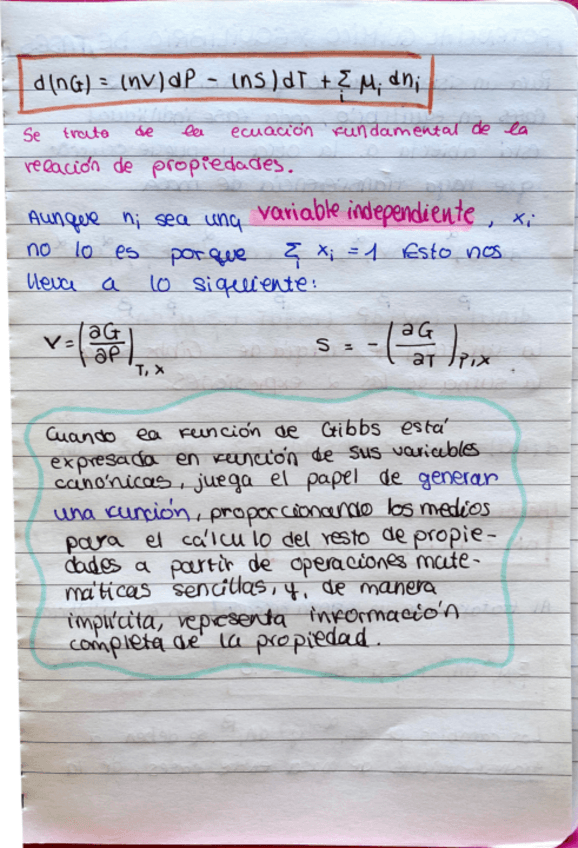 d(nG) = (nV)dP - (nS)dT + Σ_i μ_i dn_i
Se trata de la ecuación fundamental de la
relación de propiedades.
Aunque n_i sea una variable independiente, x_i
no lo es porque Σ_i x_i = 1 Esto nos
lleva a lo siguiente:
V = (∂G/∂P)_T,x S = - (∂G/∂T)_P,x
Cuando la función de Gibbs está
expresada en función de sus variables
canónicas, juega el papel de generar
una función, proporcionando los medios
para el cálculo del resto de propie-
dades a partir de operaciones mate-
máticas sencillas, y, de manera
implícita, representa información
completa de la propiedad.